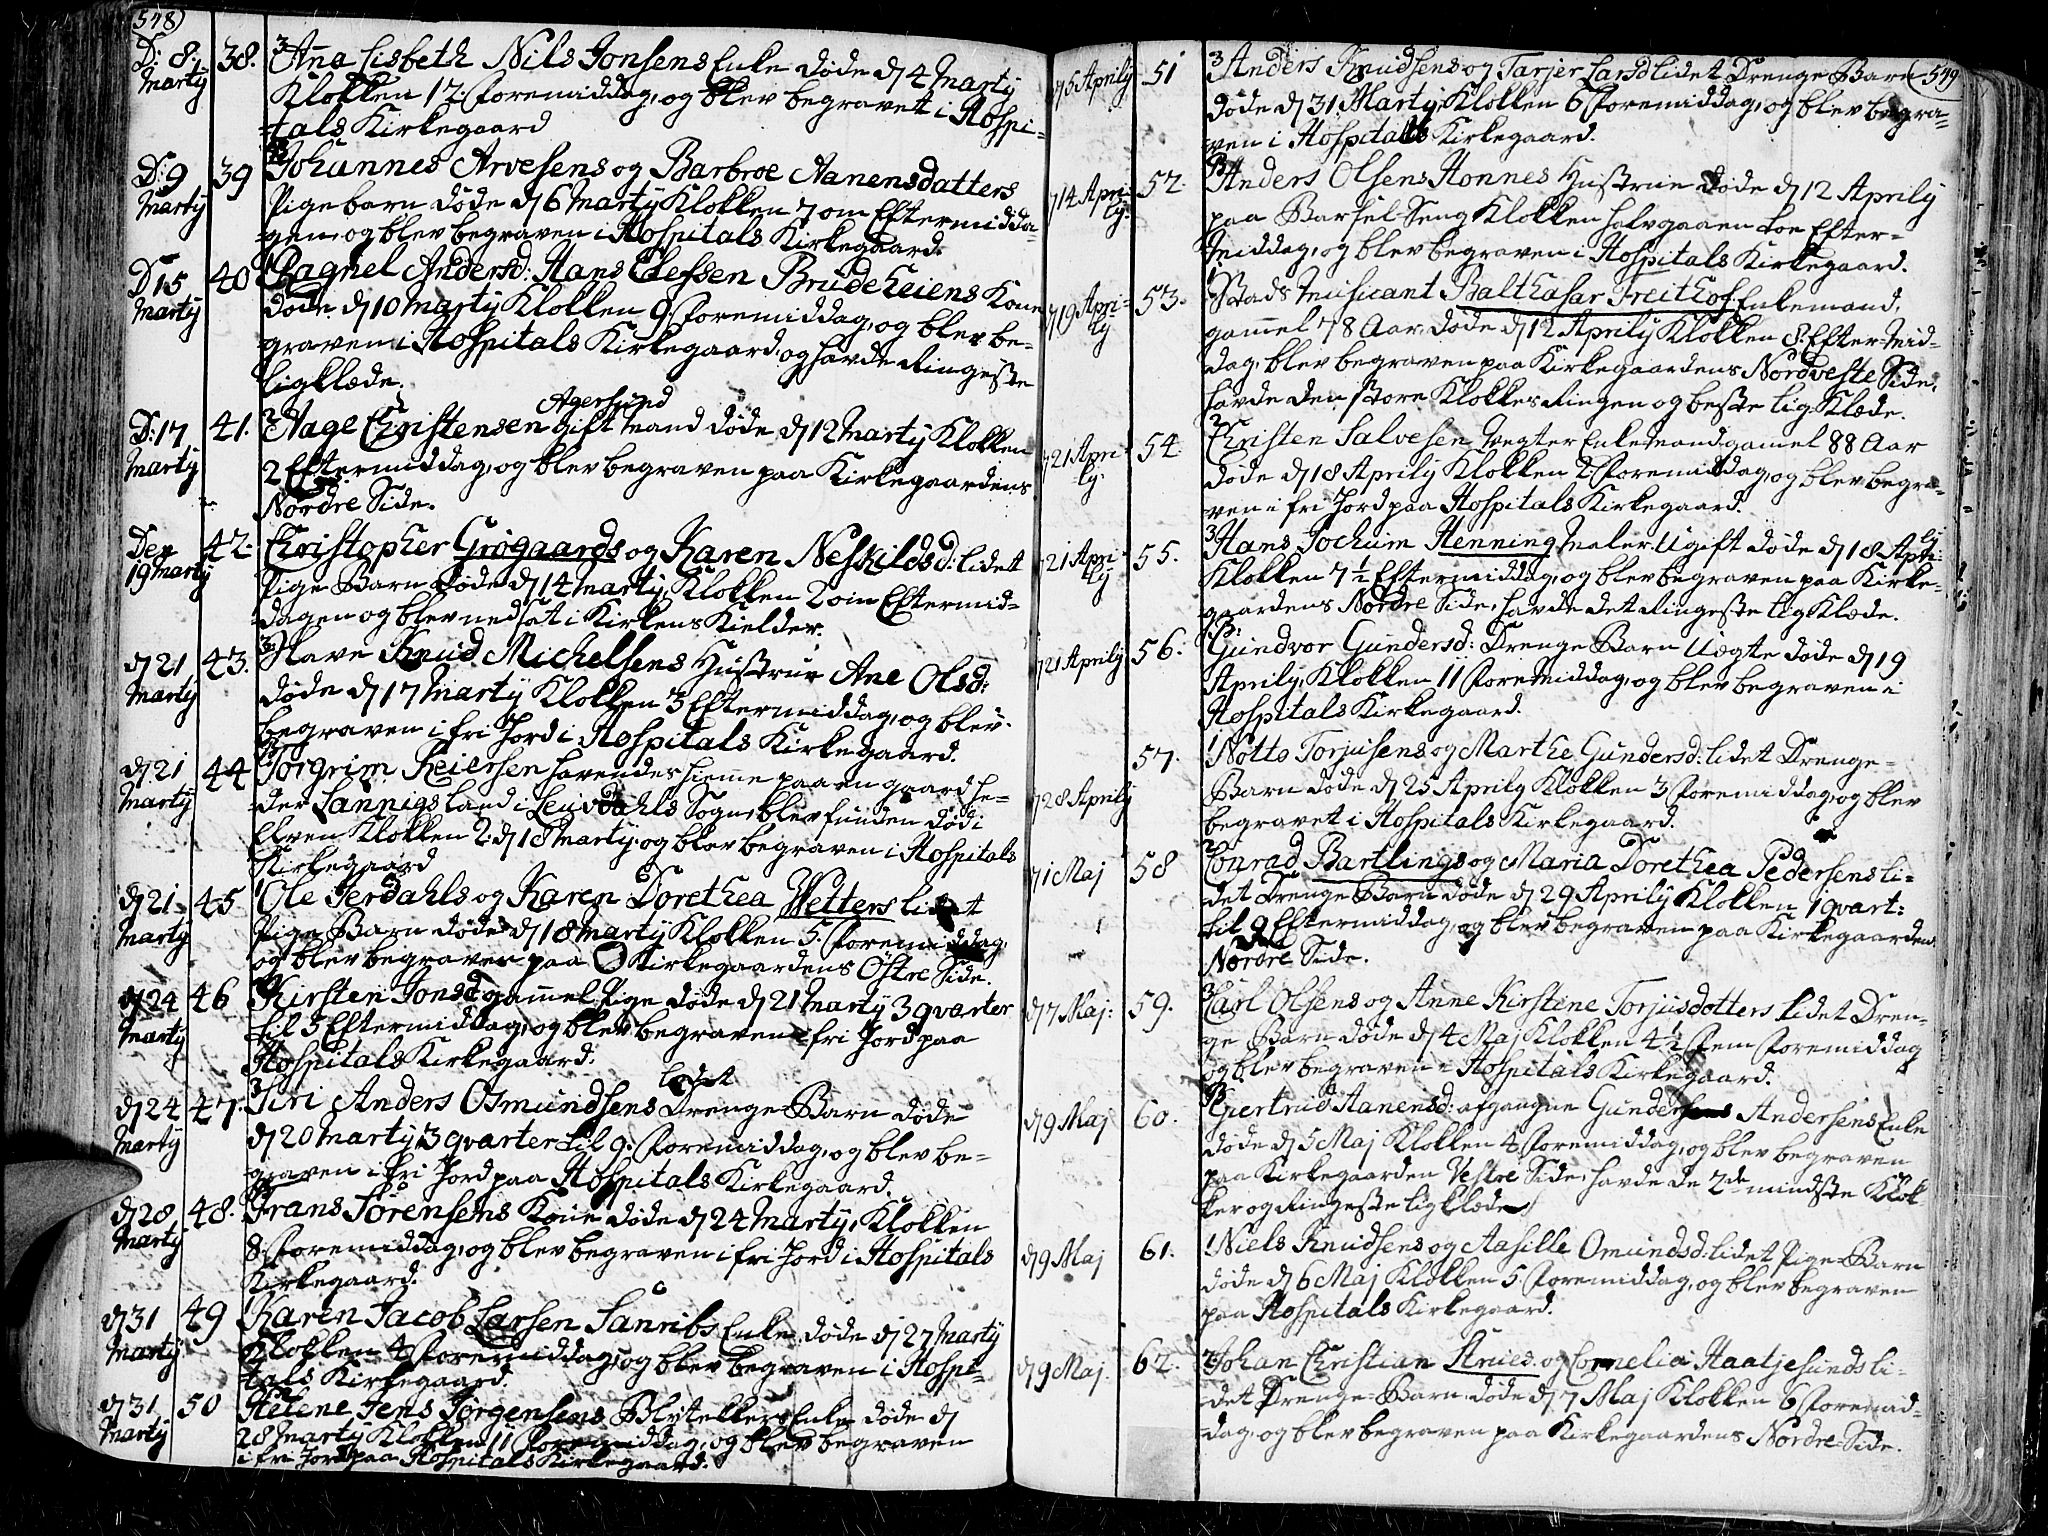 548)
D: 8. Marty 38. Anna Lisbeth Nils Jonsens Enke døde d 4 Marty
Klokken 12 Formiddag, og blev begravet i Hospi-
tals Kirkegaard
D: 9 Marty 39 Johannes Arvesens og Barbroe Aanensdatters
Pigebarn døde d 6 Marty Klokken 7 om Eftermidda-
gen, og blev begraven i Hospitals Kirkegaard.
D 15 Marty 40 Ragnel Andersd: Hans Elefsen Brudeheiens Kone
døde d 10 Marty Klokken 9. Formiddag, og blev be-
graven i Hospitals Kirkegaard, og havde Ringeste
Ligklæde.
D: 17 Marty 41. Aage Christensen Agersund Gift Mand døde d 12 Marty Klokken
2 Eftermiddag, og blev begraven paa Kirkegaardens
Nordre Side.
Den 19 Marty 42. Christopher Grøgaards og Karen Neskildsd: lidet
Pige Barn døde d 14 Marty, Klokken 2 om Eftermid-
dagen og blev nedsat i Kirkens Kielder.
d 21 Marty 43. Slave Knud Michelsens Hustrue Ane Olsd:
døde d 17 Marty Klokken 3 Eftermiddag, og blev
begraven i fri Jord i Hospitals Kirkegaard.
d 21 Marty 44 Torgrim Reiersen havendes hieme paa en gaard he-
der Lannigs land i Sogn, blev funden død i
Elven Klokken 2. d 18 Marty, og blev begraven i Hospitals
Kirkegaard
d 21 Marty 45 Ole Terdahls og Karen Dorethea Wetters lidet
Pige Barn døde d 18 Marty Klokken 5. Formiddag,
og blev begraven paa Kirkegaardens Østre Side.
d 24 Marty 46 Kirsten Jonsd gammel Pige døde d 21 Marty 3 qvarter
til 3 Eftermiddag, og blev begraven i fri Jord paa
Hospitals Kirkegaard.
d 24 Marty 47. Siri Anders Osmundsens lidet Drenge-Barn døde
d 20 Marty 3 qvarter til 9. Formiddag, og blev be-
graven i fri Jord paa Hospitals Kirkegaard.
d 28 Marty 48. Frans Sørensens Kone døde d 24 Marty, Klokken
8. Formiddag, og blev begraven i fri Jord i Hospitals
Kirkegaard.
d 31 Marty 49 Karen Jacob Larsen Sanribs Enke, døde d 27 Marty
Klokken 4 Formiddag, og blev begraven i Hospi-
tals Kirkegaard.
d 31 Marty 50 Helene Jens Jørgensens Enke døde d
28 Marty Klokken 11 Formiddag, og blev begraven
i fri Jord paa Hospitals Kirkegaard.
(549
d 5 Aprily 51 Anders Knudsens og Tarjer Larsd lidet Drenge-Barn
døde d 31 Marty Klokken 6 Formiddag, og blev begra-
ven i Hospitals Kirkegaard.
d 14 Aprily. 52. Anders Olsens Honnes Hustrue døde d 12 Aprily
paa Barsel-Seng Klokken halvgaaen toe Efter-
middag, og blev begraven i Hospitals Kirkegaard.
d 19 Aprily 53. Stads Musicant Balthasar Freithof, Enkemand,
gammel 78 Aar, døde d 12 Aprily Klokken 8. Efter-Mid-
dag, blev begraven paa Kirkegaardens Nordveste Side,
havde den store Klokkes Ringen og beste Lig Klæde.
d 21 Aprily. 54 Christen Salvesen Vegter Enkemand gamel 88 Aar
døde d 18 Aprily Klokken 2. Formiddag, og blev begra-
ven i fri Jord paa Hospitals Kirkegaard.
d 21 Aprily 55. Hans Jochum Henning Maler Ugift døde d 18 Aprily
Klokken 7 1/2 Eftermiddag, og blev begraven paa Kirke-
gaardens Nordre Side, havde det Ringeste Lig Klæde.
d 21 Aprily 56. Gundvor Gundersd: Drenge Barn Uægte døde d 19
Aprily, Klokken 11 Formiddag, og blev begraven i
Hospitals Kirkegaard.
d 28 Aprily 57. Notto Torjusens og Marthe Gundersd: lidet Drenge-
Barn døde d 25 Aprily Klokken 3 Formiddag, og blev
begravet i Hospitals Kirkegaard.
d 1 Maj 58 Conrad Bartlings og Maria Dorethea Pedersens li-
det Drenge Barn døde d 29 Aprily Klokken 1 qvart:
til 9 Eftermiddag, og blev begraven paa Kirkegaardens
Nordre Side.
d 7 Maj: 59. Carl Olsens og Anne Kirstine Torjusdotters lidet Dren-
ge Barn døde d 4 Maj Klokken 4 1/2 Formiddag
og blev begraven i Hospitals Kirkegaard.
d 9 Maj 60. Giertrud Aanensd: afgangne Gunder Andersens Enke
døde d 5 Maj Klokken 4 Formiddag, og blev begraven
paa Kirkegaarden Vestre Side, havde de 2de mindste Klok-
ker og Ringeste Ligklæde
d 9 Maj 61. Niels Knudsens og Aasille Omundsd: lidet Pige-Barn
døde d 6 Maj Klokken 5. Formiddag, og blev begraven
paa Hospitals Kirkegaard.
d 9 Maj. 62. Johan Christian Knies. og Cornelia Haatjesunds li-
det Drenge-Barn døde d 7 Maj Klokken 6 Formid-
dag, og blev begraven paa Kirkegaardens Nordre-Side.